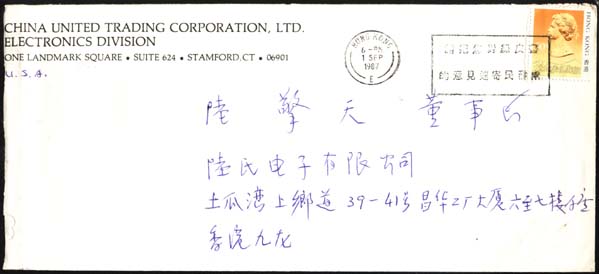 CHINA UNITED TRADING CORPORATION, LTD.
ELECTRONICS DIVISION
ONE LANDMARK SQUARE • SUITE 624 • STAMFORD, CT • 06901
U.S.A.
HONG KONG
1 SEP
1987
E
的意見
HONG KONG 香港
陸 擎 天 董事長
陸氏电子有限公司
土瓜湾上鄉道 39-41号昌华工厂大厦六至七楼
香港九龙